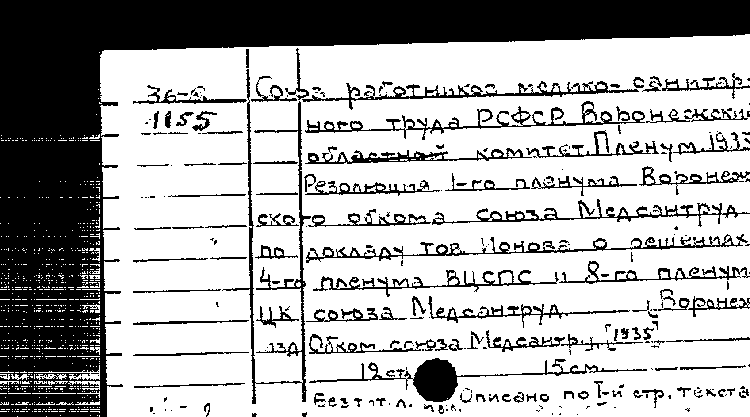 36-8
1155
Союз работников медико-санитар-
ного труда РСФСР. Воронежский
областной комитет. Пленум. 1935
Резолюция 1-го пленума Воронеж
ского обкома союза Медсантруд
по докладу тов Ионова о решениях
4-го пленума ВЦСПС и 8-го пленума
ЦК союза Медсантруд. [Воронеж
изд Обком союза Медсантр.], [1935]
12 стр 15 см.
Без т.л. Описано по 1-й стр. текста